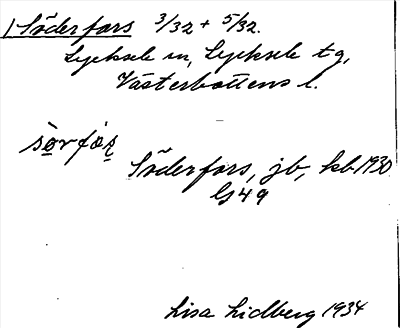 1 Söderfors 3/32 + 5/32.
Lycksele sn, Lycksele tg,
Västerbottens l.
sö̀rfòʂ
Söderfors, jb, kb 1930
Gs 49
Lisa Lidberg 1934